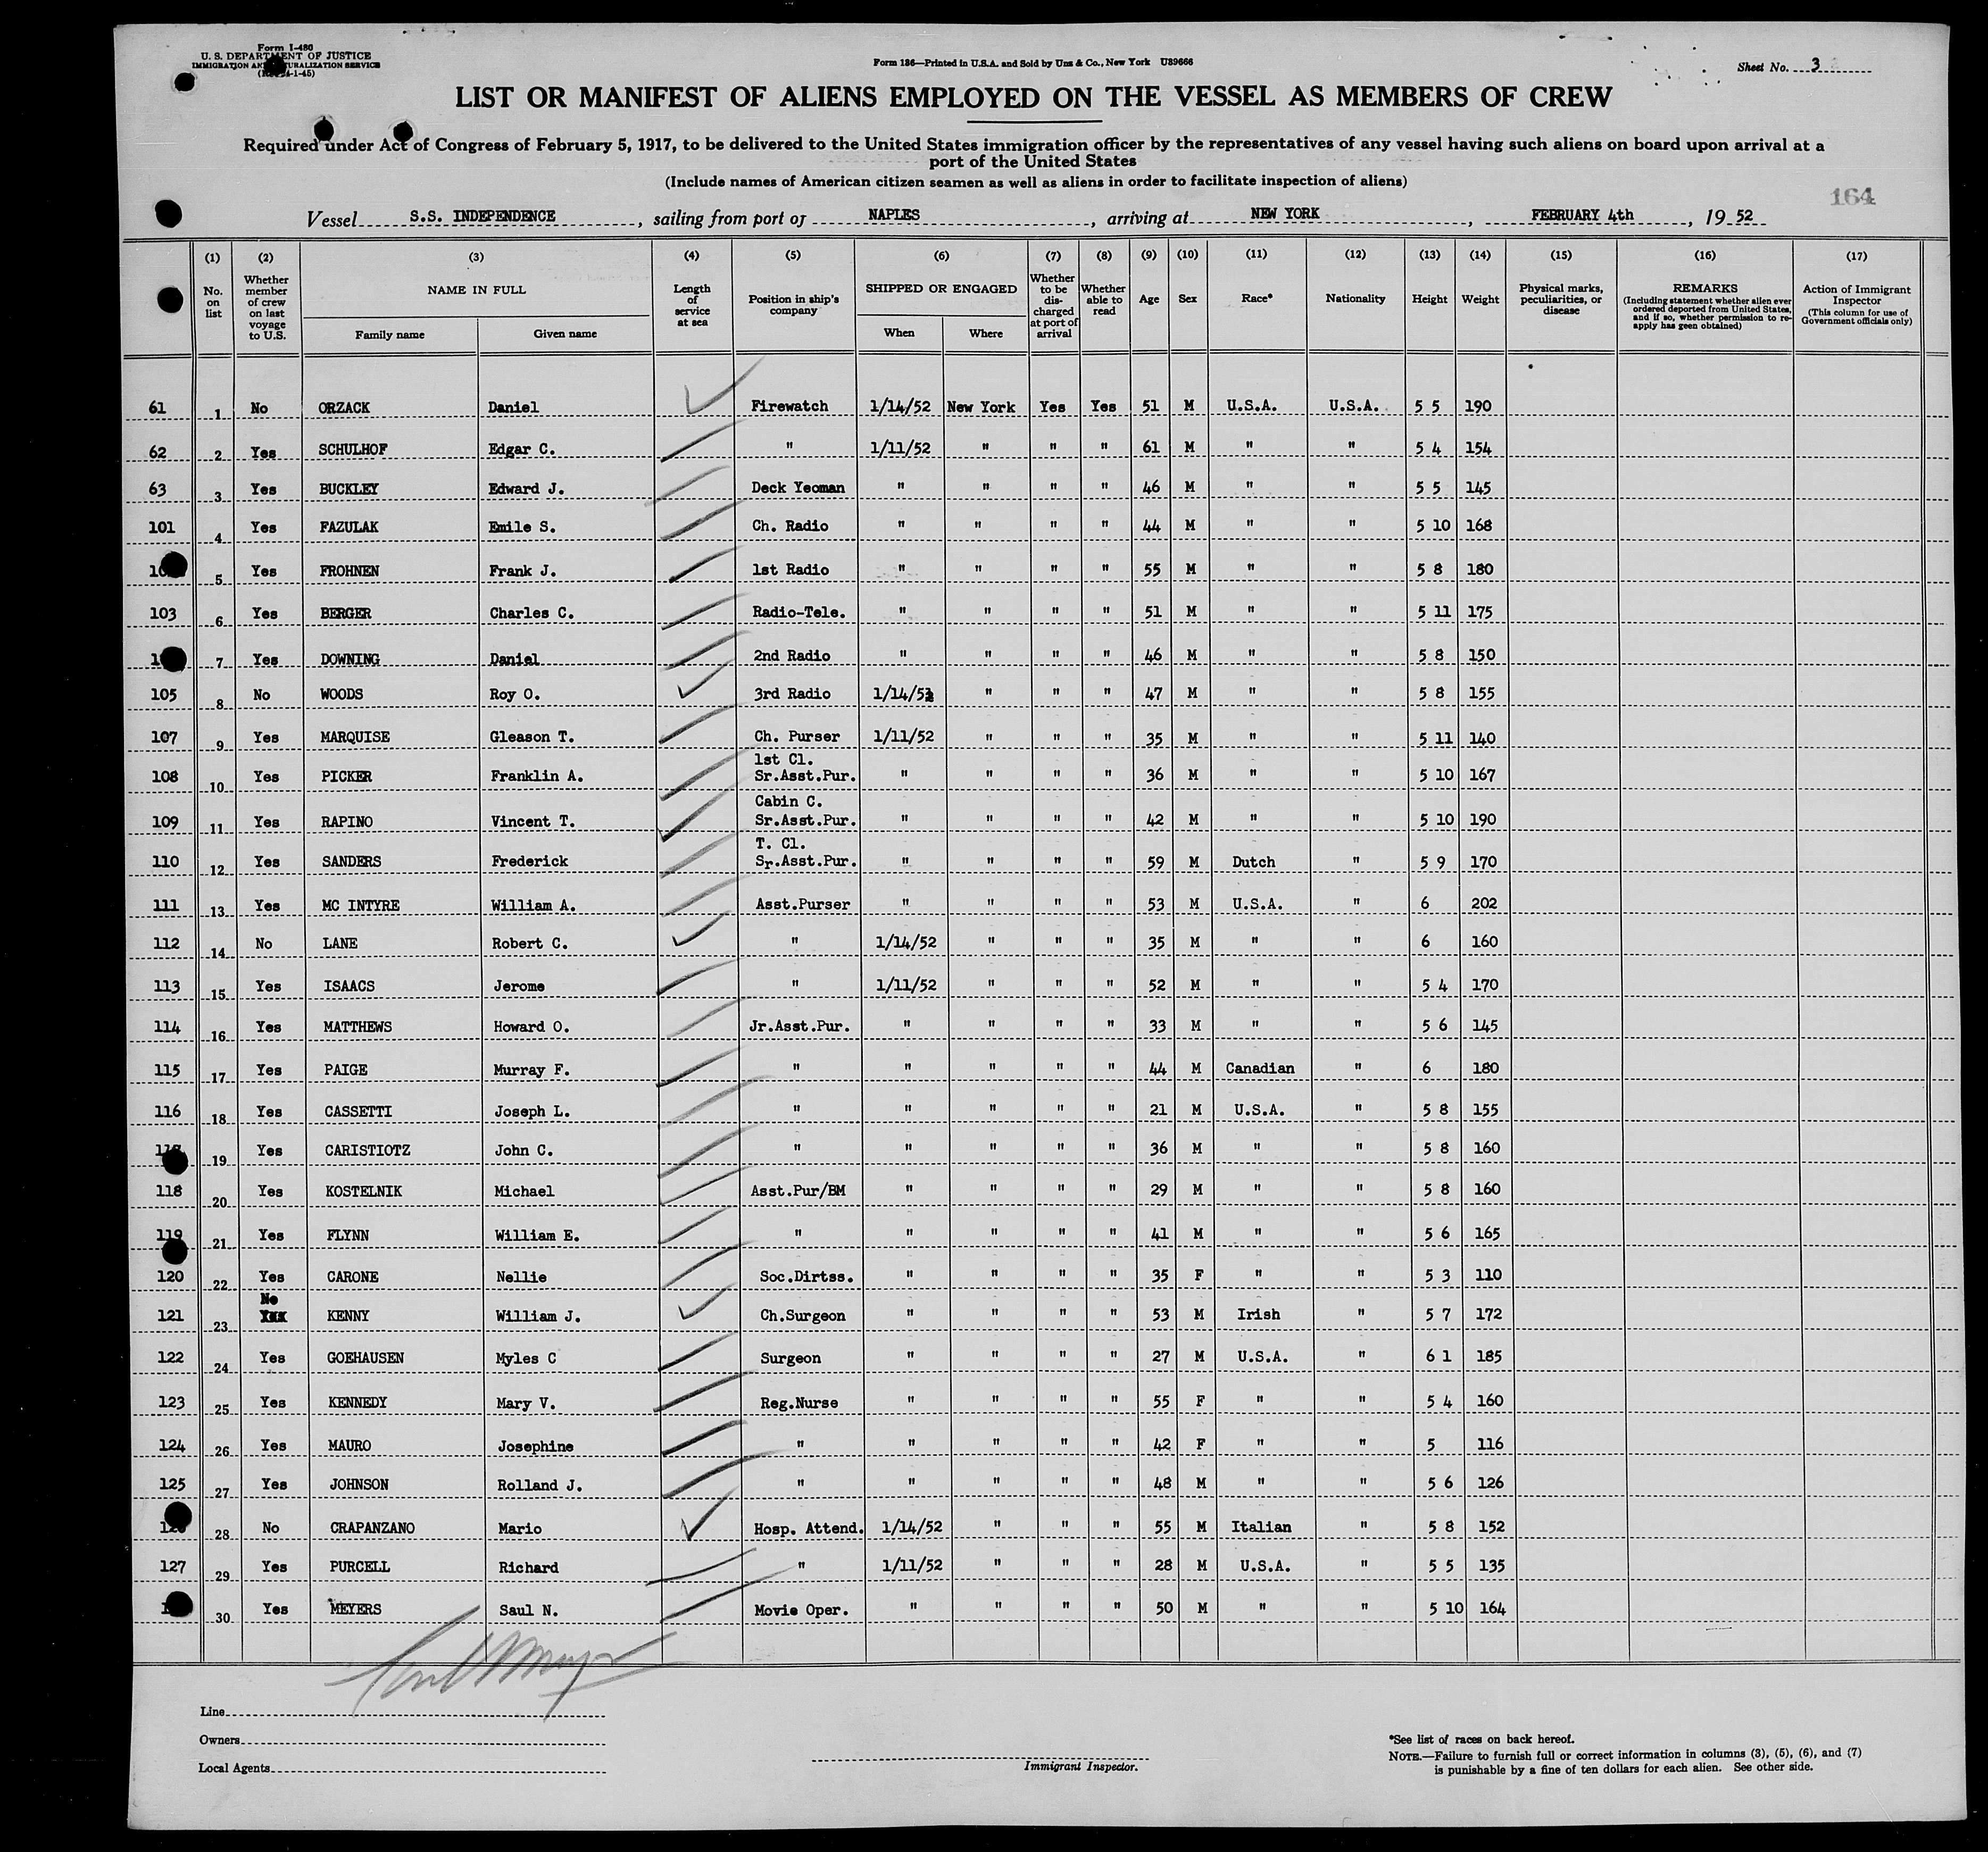 Form I-480
U. S. DEPARTMENT OF JUSTICE
IMMIGRATION AND NATURALIZATION SERVICE
4-1-45)
Form 186—Printed in U.S.A. and Sold by Unz & Co., New York U89666
Sheet No. 3
LIST OR MANIFEST OF ALIENS EMPLOYED ON THE VESSEL AS MEMBERS OF CREW
Required under Act of Congress of February 5, 1917, to be delivered to the United States immigration officer by the representatives of any vessel having such aliens on board upon arrival at a
port of the United States
(Include names of American citizen seamen as well as aliens in order to facilitate inspection of aliens)
164
Vessel S.S. INDEPENDENCE, sailing from port of NAPLES, arriving at NEW YORK, FEBRUARY 4th, 19 52
(1) (2) (3) (4) (5) (6) (7) (8) (9) (10) (11) (12) (13) (14) (15) (16) (17)
No. on list
Whether member of crew on last voyage to U.S.
NAME IN FULL
Family name Given name
Length of service at sea
Position in ship's company
SHIPPED OR ENGAGED
When Where
Whether to be discharged at port of arrival
Whether able to read
Age
Sex
Race*
Nationality
Height
Weight
Physical marks, peculiarities, or disease
REMARKS
(Including statement whether alien ever ordered deported from United States, and if so, whether permission to re-apply has geen obtained)
Action of Immigrant Inspector
(This column for use of Government officials only)
61 1 No ORZACK Daniel Firewatch 1/14/52 New York Yes Yes 51 M U.S.A. U.S.A. 5 5 190
62 2 Yes SCHULHOF Edgar C. " 1/11/52 " " " 61 M " " 5 4 154
63 3 Yes BUCKLEY Edward J. Deck Yeoman " " " " 46 M " " 5 5 145
101 4 Yes FAZULAK Emile S. Ch. Radio " " " " 44 M " " 5 10 168
5 Yes FROHNEN Frank J. 1st Radio " " " " 55 M " " 5 8 180
103 6 Yes BERGER Charles C. Radio-Tele. " " " " 51 M " " 5 11 175
7 Yes DOWNING Daniel 2nd Radio " " " " 46 M " " 5 8 150
105 8 No WOODS Roy O. 3rd Radio 1/14/52 " " " 47 M " " 5 8 155
107 9 Yes MARQUISE Gleason T. Ch. Purser 1/11/52 " " " 35 M " " 5 11 140
1st Cl.
108 10 Yes PICKER Franklin A. Sr.Asst.Pur. " " " " 36 M " " 5 10 167
Cabin C.
109 11 Yes RAPINO Vincent T. Sr.Asst.Pur. " " " " 42 M " " 5 10 190
T. Cl.
110 12 Yes SANDERS Frederick Sr.Asst.Pur. " " " " 59 M Dutch " 5 9 170
111 13 Yes MC INTYRE William A. Asst.Purser " " " " 53 M U.S.A. " 6 202
112 14 No LANE Robert C. " 1/14/52 " " " 35 M " " 6 160
113 15 Yes ISAACS Jerome " 1/11/52 " " " 52 M " " 5 4 170
114 16 Yes MATTHEWS Howard O. Jr.Asst.Pur. " " " " 33 M " " 5 6 145
115 17 Yes PAIGE Murray F. " " " " " 44 M Canadian " 6 180
116 18 Yes CASSETTI Joseph L. " " " " " 21 M U.S.A. " 5 8 155
117 19 Yes CARISTIOTZ John C. " " " " " 36 M " " 5 8 160
118 20 Yes KOSTELNIK Michael Asst.Pur/BM " " " " 29 M " " 5 8 160
119 21 Yes FLYNN William E. " " " " " 41 M " " 5 6 165
120 22 Yes CARONE Nellie Soc.Dirtss. " " " " 35 F " " 5 3 110
No
121 23 KENNY William J. Ch.Surgeon " " " " 53 M Irish " 5 7 172
122 24 Yes GOEHAUSEN Myles C Surgeon " " " " 27 M U.S.A. " 6 1 185
123 25 Yes KENNEDY Mary V. Reg.Nurse " " " " 55 F " " 5 4 160
124 26 Yes MAURO Josephine " " " " " 42 F " " 5 116
125 27 Yes JOHNSON Rolland J. " " " " " 48 M " " 5 6 126
28 No CRAPANZANO Mario Hosp. Attend. 1/14/52 " " " 55 M Italian " 5 8 152
127 29 Yes PURCELL Richard " 1/11/52 " " " 28 M U.S.A. " 5 5 135
30 Yes MEYERS Saul N. Movie Oper. " " " " 50 M " " 5 10 164
Line
Owners
Local Agents
Immigrant Inspector.
*See list of races on back hereof.
NOTE.—Failure to furnish full or correct information in columns (3), (5), (6), and (7)
is punishable by a fine of ten dollars for each alien. See other side.